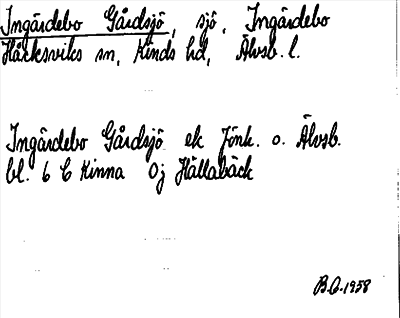 Ingärdebo Gårdsjö, sjö, Ingärdebo
Håcksviks sn, Kinds hd, Älvsb. l.
Ingärdebo Gårdsjö ek Jönk. o. Älvsb.
bl. 6 C Kinna 0j Hållabäck
B.C. 1958